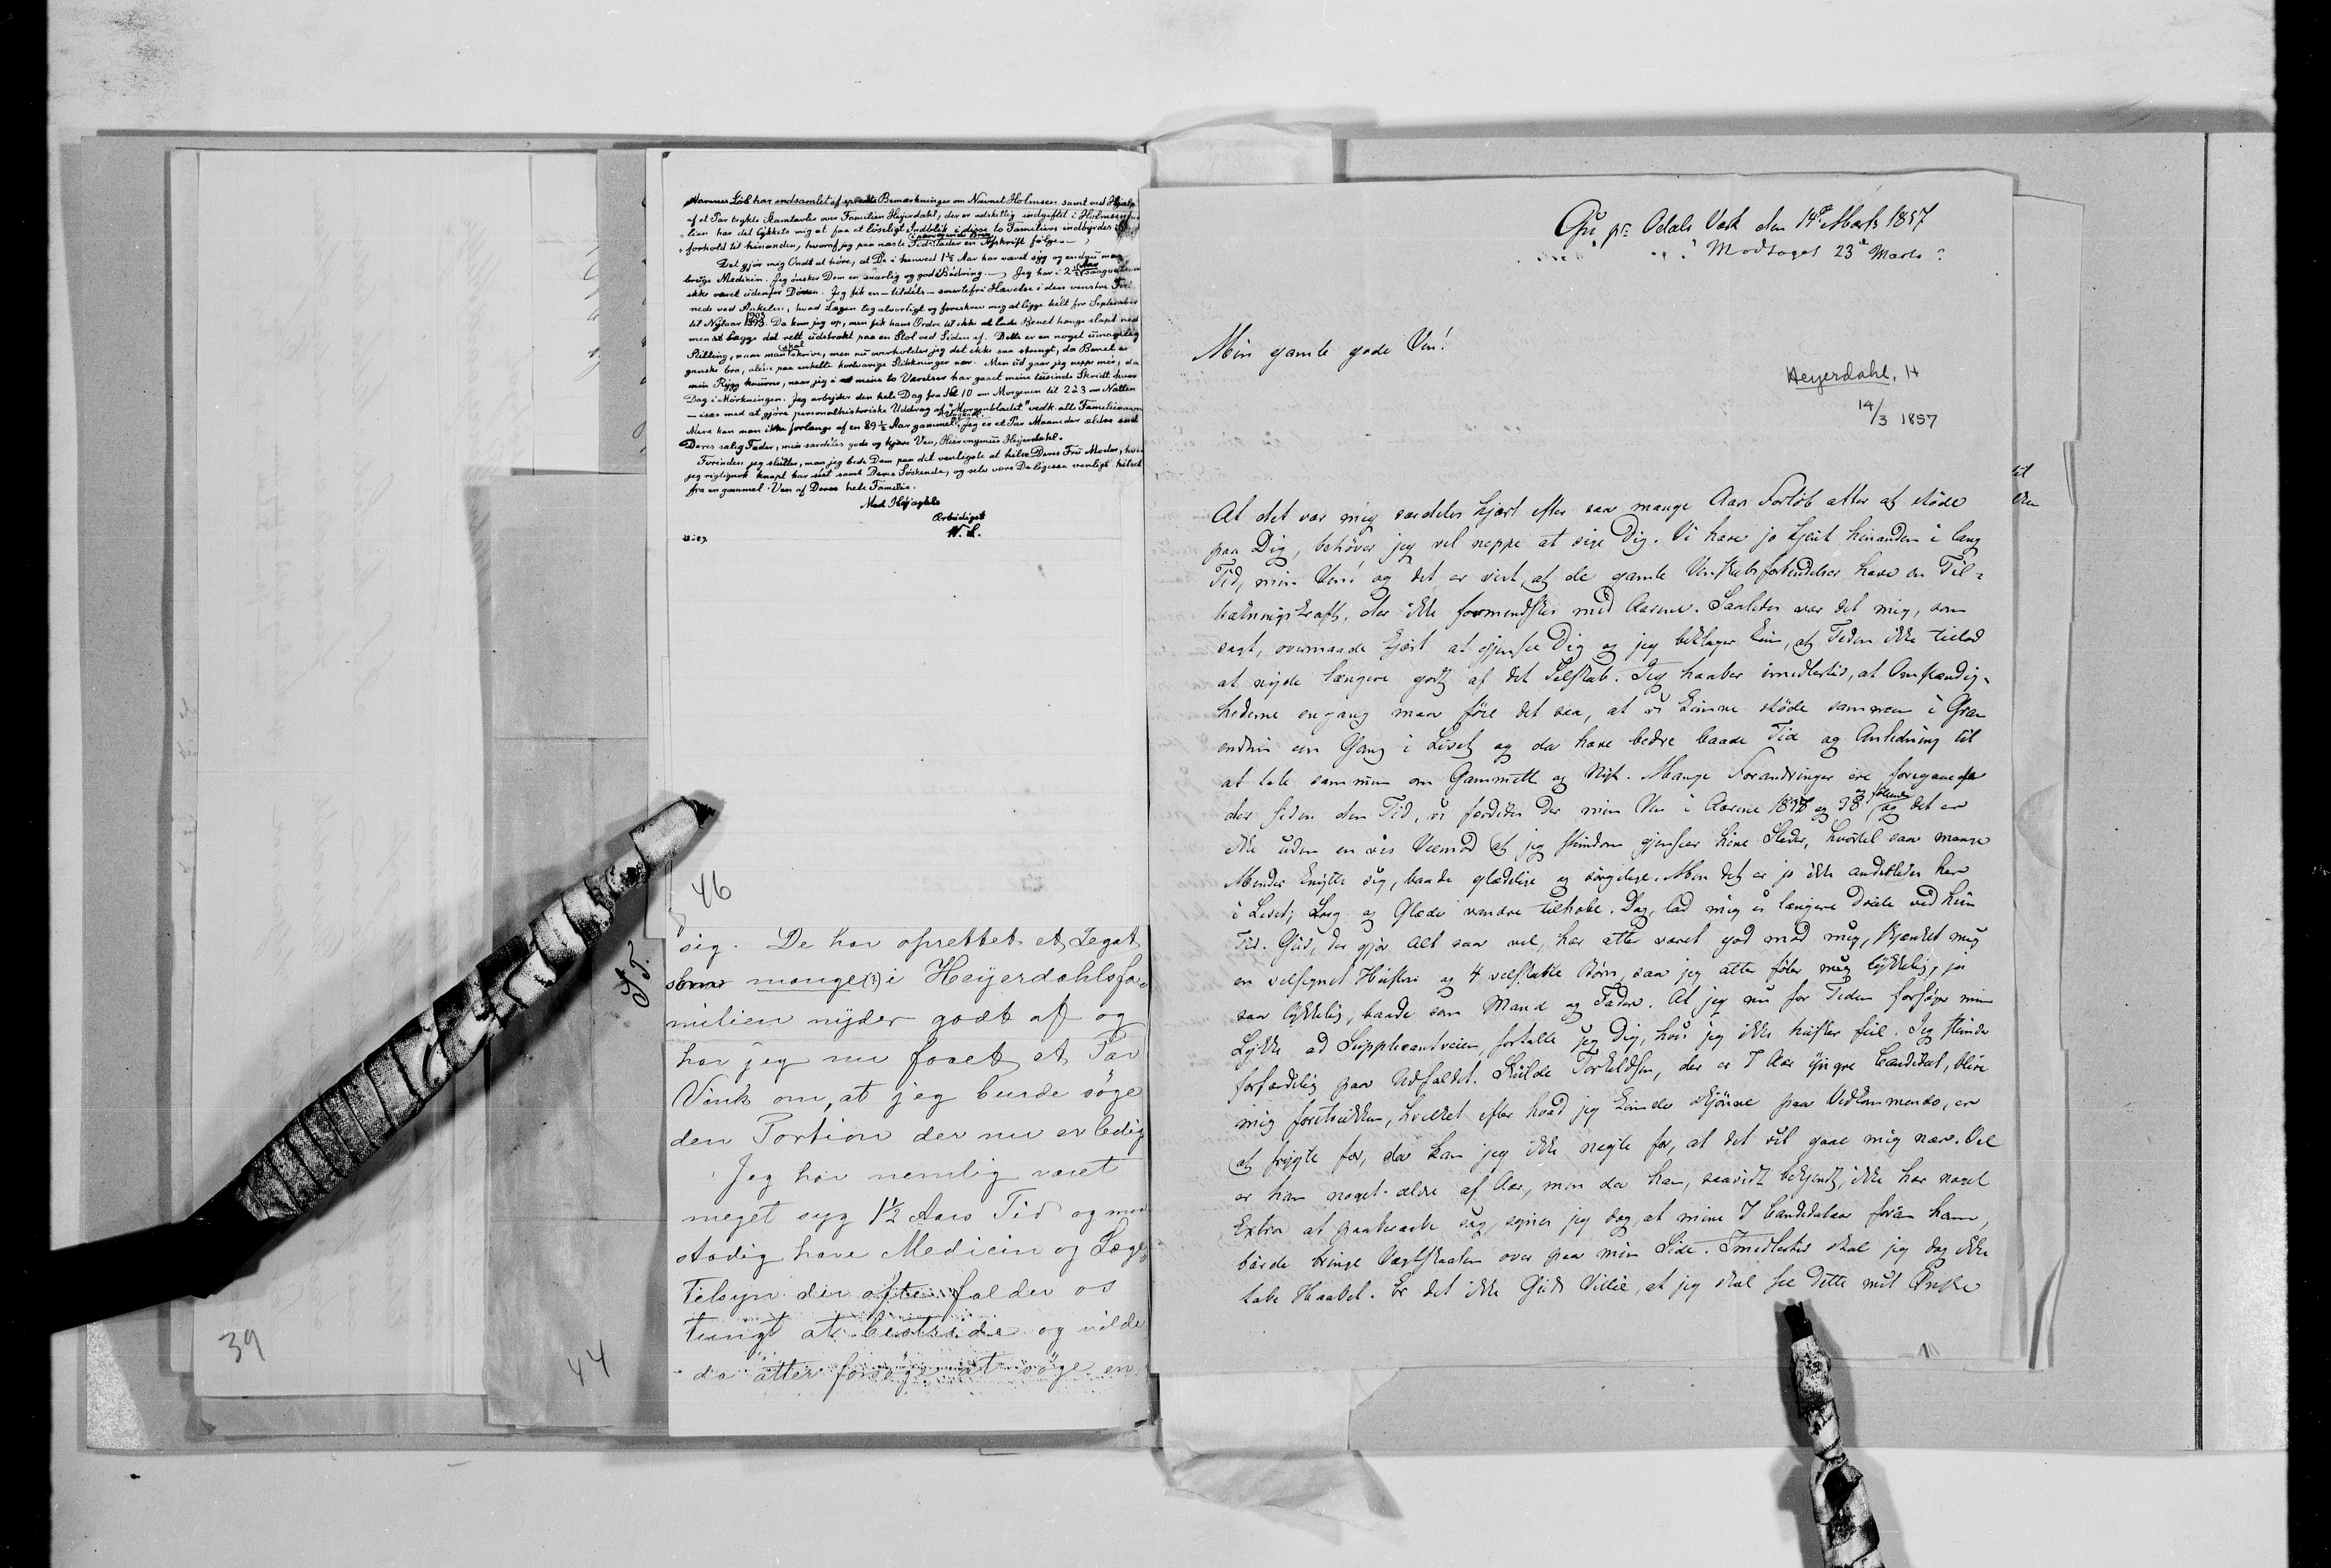 Aarenes Löb har indsamlet af spredte Bemærkninger om Navnet Holmsen samt ved Hjælp
af et Par trykte Stamtavler over Familien Heyerdahl, der er adskillig indgiftet i
lien har det lykkets mig at faa et löseligt Indblik i disse to Familiers indbyrdes
forhold til hinanden, hvoraf jeg paa næste Sider en Afskrift fölger
Det gjör mig Ondt at höre, at De i henved 1½ Aar har været syg og endnu maa
bruge Medicin. Jeg ønsker Dem en snarlig og god Bedring. Jeg har i 2
ikke været udenfor Dören. Jeg fik en - tildels - smertefri Hævelse i den venstre Fod
nede ved Ankelen, hvad Lægen tog alvorligt og foreskrev mig at ligge helt fra September
til Nytaar. Da kom jeg op, men fik hans Ordre til ikke at lade Benet hænge slapt ned
men at lægge det rett udstrakt paa en Stol ved Siden af. Dette er en noget umagelig
Stilling, naar man skal skrive, men nu overholder jeg det ikke saa strengt, da Benet er
ganske bra, alene paa enkelte kortvarige Stikkninger nær. Men ud gaar jeg neppe mer, da
min Rygg knurrer, naar jeg i mine to Værelser har gaaet mine tusinde Skridt hver
Dag i Mörkningen. Jeg arbejder den hele Dag fra Kl 10 om Morgenen til 2 à 3 om Natten
- især med at gjöre personalhistoriske Uddrag af "Morgenbladet" vedk. alle Familienavn
Mere kan man ikke forlange af en 89½ Aar gammel. Jeg er et Par Maaneder ældre end
Deres salig Fader, min særdeles gode og kjære Ven, Hieronymus Heyerdahl.
Forinden jeg slutter, maa jeg bede Dem paa det venligste at hilse Deres Fru Moder,
jeg rigtignok knapt har seet samt Deres Söskende, og selv være De ligesaa venligt hilset
fra en gammel Ven af Deres hele Familie.
Med Höjagtelse
Ærbödigst
N. S.
46
sig. De har oprettet et Legat
som mange (?) i Heyerdahlsfa-
milien nyder godt af og
har jeg nu faaet et Par
Vink om, at jeg burde söge
den Portion der nu er ledig
Jeg har nemlig været
meget syg 1½ Aars Tid og maa
stadig have Medicin og Læge-
tilsyn der ofte falder os
tungt at bestride og vilde
da atter forsöge at söge en
S. T.
39
44
Gu pr. Odals Værk den 14de Marts 1857
Modtaget 23de Marts
Min gamle gode Ven!
Heyerdahl, H
14/3 1857
At det var mig særdeles kjært efter saa mange Aars Forlöb atter at støde
paa Dig, behöver jeg vel neppe at sige Dig. Vi have jo kjent hinanden i lang
Tid, min Ven! og det er vist, at de gamle Venskabsforbindelser have en Til-
trækningskraft, der ikke formindskes med Aarene. Saaledes var det mig, som
sagt, overmaade kjært at gjensee Dig og jeg beklager kun, at Tiden ikke tillod
at nyde længere godt af dit Selskab. Jeg haaber imidlertid, at Omstændig-
hederne engang maa föie det saa, at vi kunne støde sammen i Gran
endnu en Gang i Livet og da have bedre baade Tid og Anledning til
at tale sammen om Gammelt og Nyt. Mange Forandringer ere foregaaede
der siden den Tid, vi færdedes der min Ven i Aarene 1837 og 38 og fölgende og det er
ikke uden en vis Veemod at jeg stundom gjenseer hine Steder, hvortil saa mange
Minder knytte sig, baade glædelige og sörgelige. Men det er jo ikke anderledes her
i Livet; Sorg og Glæde vandre tilhobe. Dog, lad mig ei længere dvæle ved hiin
Tid. Gud, der gjör Alt saa vel, har atter været god mod mig, skjænket mig
en velsignet Hustru og 4 velskabte Børn, saa jeg atter föler mig lykkelig, ja
saa lykkelig, baade som Mand og Fader. At jeg nu for Tiden forsöger min
Lykke ad Supplicantveien, fortalte jeg Dig, hvis jeg ikke husker feil. Jeg stunder
forfærdelig paa Udfaldet. Skulde Torkildsen, der er 7 Aar yngre Candidat, blive
mig foretrukken, hvilket efter hvad jeg kunde skjönne paa Vedkommende, er
at frygte for, da kan jeg ikke negte for, at det vil gaae mig nær. Vel
er han noget ældre af Aar, men da han, saavidt bekjendt, ikke har noget
Extra at paaberaabe sig, synes jeg dog, at mine 7 Candidataar foran ham,
burde bringe Vægtskaalen over paa min Side. Imidlertid skal jeg dog ikke
tabe Haabet. Er det ikke Guds Villie, at jeg skal see dette mit Ønske
til